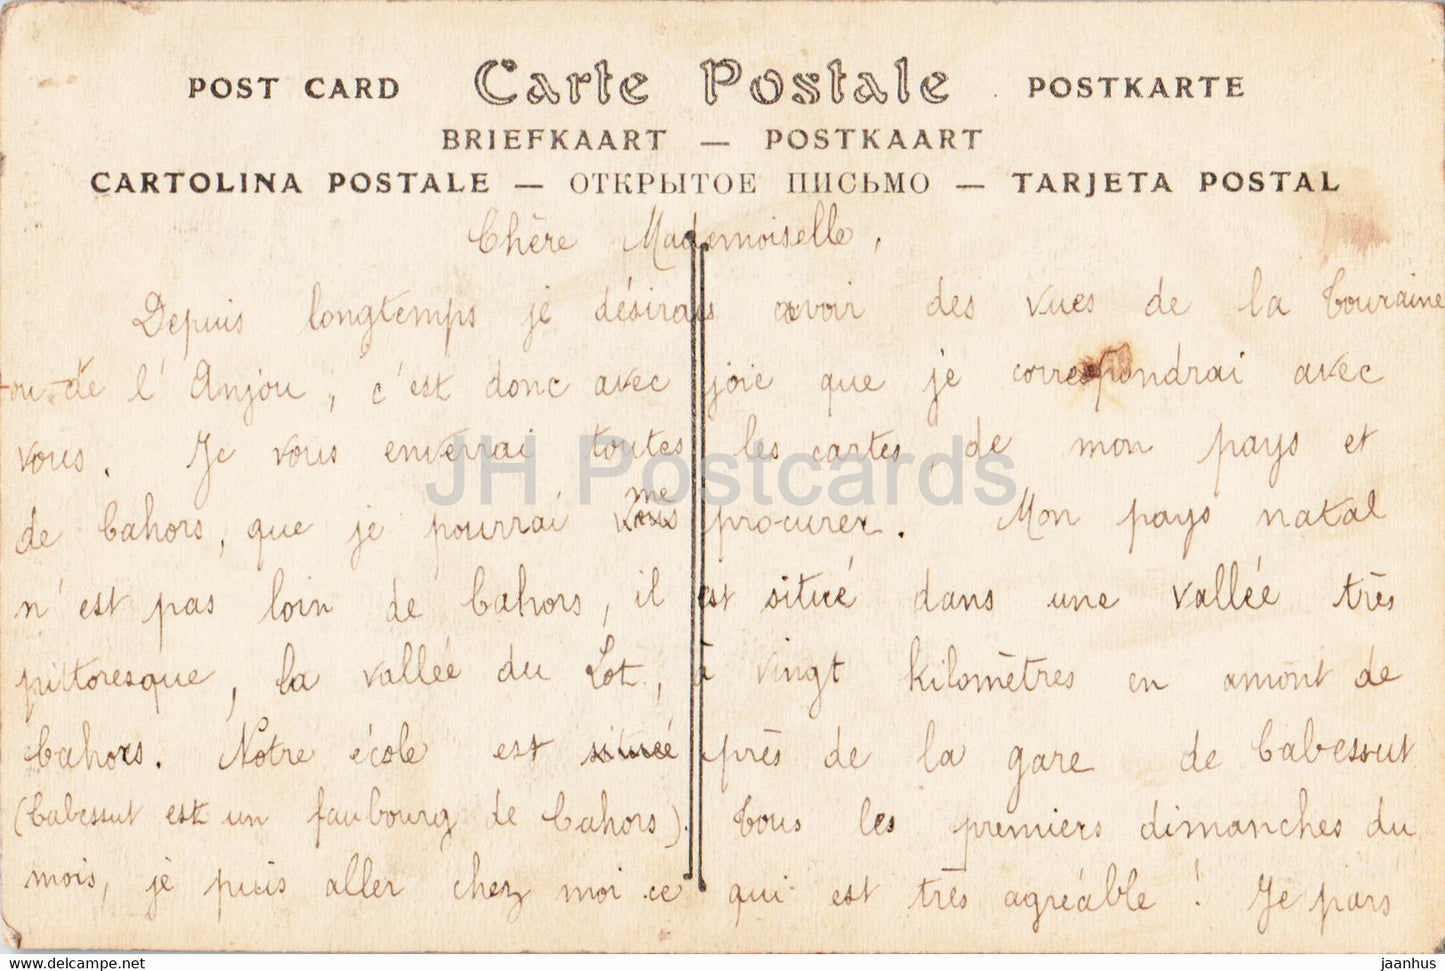 POST CARD Carte Postale POSTKARTE
BRIEFKAART — POSTKAART
CARTOLINA POSTALE — ОТКРЫТОЕ ПИСЬМО — TARJETA POSTAL
Chère Mademoiselle,
Depuis longtemps je désirais avoir des vues de la Touraine
ou de l'Anjou, c'est donc avec joie que je correspondrai avec
vous. Je vous enverrai toutes les cartes, de mon pays et
de Cahors, que je pourrai vous me procurer. Mon pays natal
n'est pas loin de Cahors, il est situé dans une vallée très
pittoresque, la vallée du Lot, à vingt kilomètres en amont de
Cahors. Notre école est située près de la gare de Cabessut
(Cabessut est un faubourg de Cahors). Tous les premiers dimanches du
mois, je puis aller chez moi ce qui est très agréable ! Je pars
JH Postcards
www.hippostcard.com
jaanhus